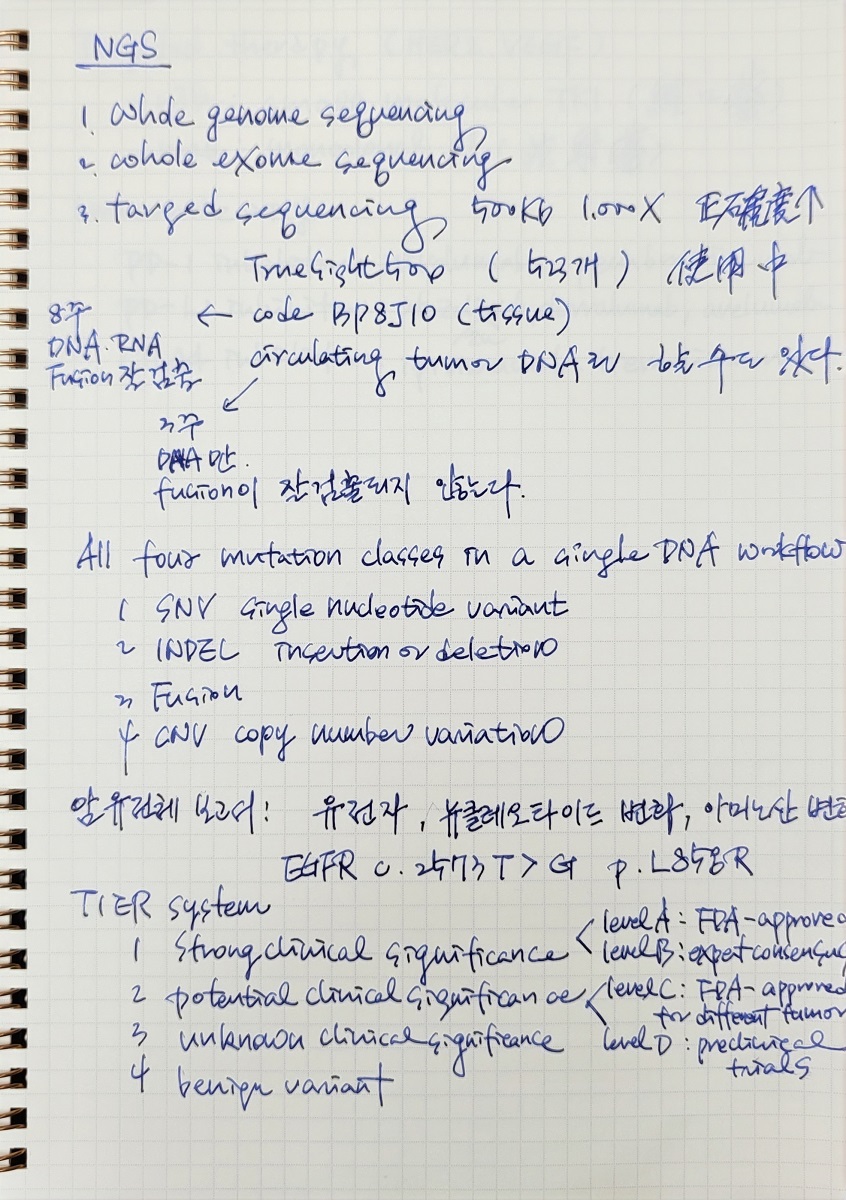 NGS
1. Whole genome sequencing
2. whole exome sequencing
3. targed sequencing 500Kb 1.000X 正確度↑
TrueSight 500 (523개) 使用中
8주 ← code BP8J10 (tissue)
DNA.RNA
Fusion 잘 검출
circulating tumor DNA로 할 수도 있다.
3주
DNA만.
fusion이 잘 검출되지 않는다.
All four mutation classes in a single DNA workflow
1 SNV single nucleotide variant
2 INDEL insertion or deletion
3 Fusion
4 CNV copy number variation
암유전체 보고서: 유전자, 뉴클레오타이드 변화, 아미노산 변화
EGFR c.2573T>G p.L858R
TIER system
1 Strong clinical significance < level A: FDA-approved
level B: expert consensus
2 potential clinical significance < level C: FDA-approved
for different tumor
3 unknown clinical significance level D: preclinical
trials
4 benign variant